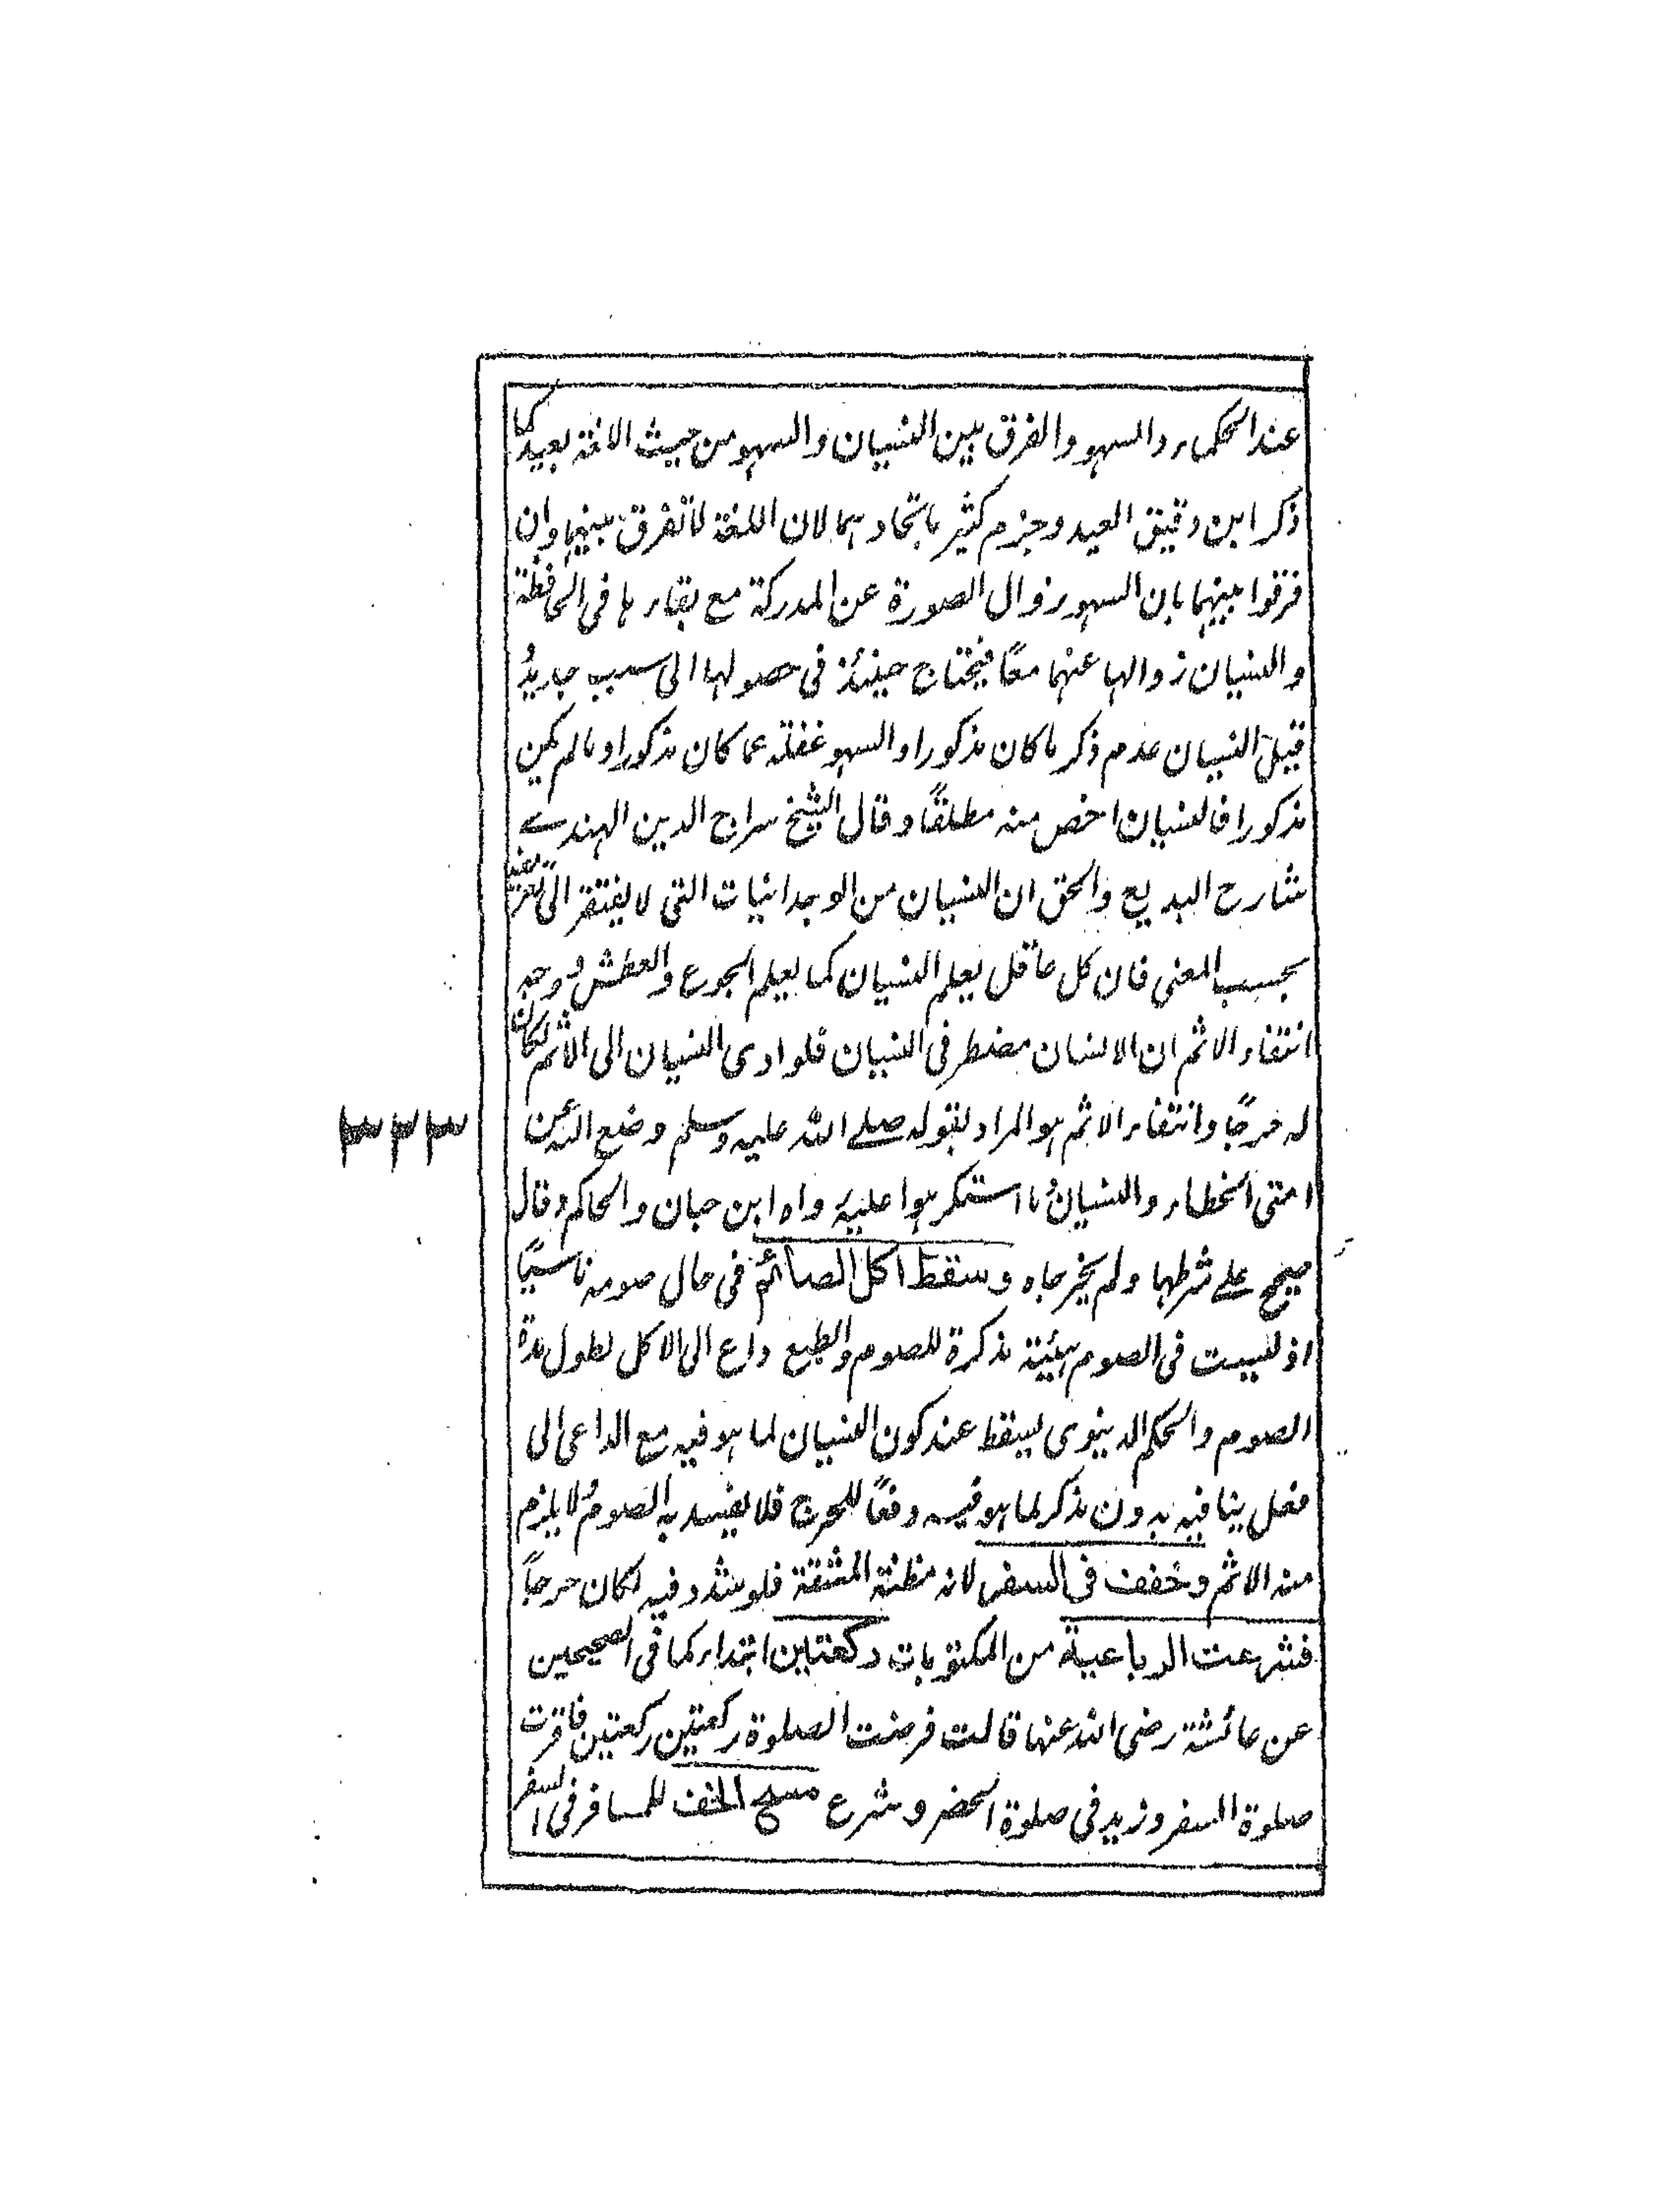 عند الحكماء والسهو والفرق بين النسيان والسهو من حيث اللغة بعيد كما
ذكر ابن دقيق العيد وجزم كثير باتحادهما لان اللغة لا تفرق بينهما وان
فرقوا بينهما بان السهو زوال الصورة عن المدركة مع بقاءها فى الحافظة
والنسيان زوالها عنهما معًا فيحتاج حينئذ فى حصولها الى سبب جديد و
قيل النسيان عدم ذكر ما كان مذكورا والسهو غفلة عما كان مذكورا وما لم يكن
مذكورا فالنسيان اخص منه مطلقًا وقال الشيخ سراج الدين الهندے
شارح البديع والحق ان النسيان من الوجدانيات التى لا يفتقر الى تعريف
بحسب المعنى فان كل عاقل يعلم النسيان كما يعلم الجوع والعطش ووجه
انتفاء الاثم ان الانسان مضطر فى النسيان فلو ادى النسيان الى الاثم لكان
له حرجًا وانتفاء الاثم هو المراد لقوله صلے الله عليه وسلم وضع الله عن
امتى الخطاء والنسيان وما استكرهوا عليه رواه ابن حبان والحاكم وقال
صحيح علے شرطهما ولم يخرجاه وسقط اكل الصائم فى حال صومه ناسيًا
اذ ليست فى الصوم هيئة مذكرة للصوم والطبع داع الى الاكل لطول مدة
الصوم والحكم الدينوى يسقط عند كون النسيان لما هو فيه مع الداعى الى
فعل ينافيه بدون مذكر لما هو فيه دفعًا للحرج فلا يفسد به الصوم ولا يلزم
منه الاثم وخفف فى السفر لانه مظنة المشقة فلو شدد فيه لكان حرجًا
فشرعت الرباعية من المكتوبات ركعتين ابتداء كما فى الصحيحين
عن عائشة رضى الله عنها قالت فرضت الصلوة ركعتين ركعتين فاقرت
صلوة السفر وزيد فى صلوة الحضر وشرع مسح الخف للمسافر فى السفر
٣٣٣